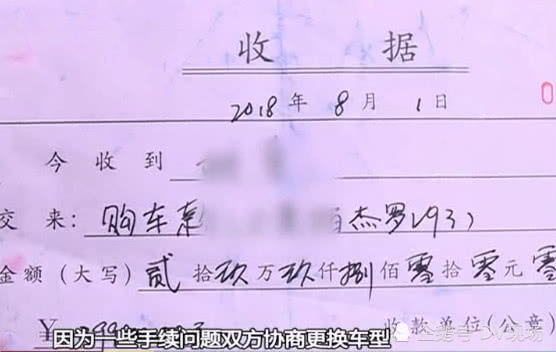 收据
2018年8月1日
0
今收到
交来：购车 杰罗(93)
金额(大写)贰拾玖万玖仟捌佰零拾零元零
¥ 收款单位(公章)
因为一些手续问题双方协商更换车型